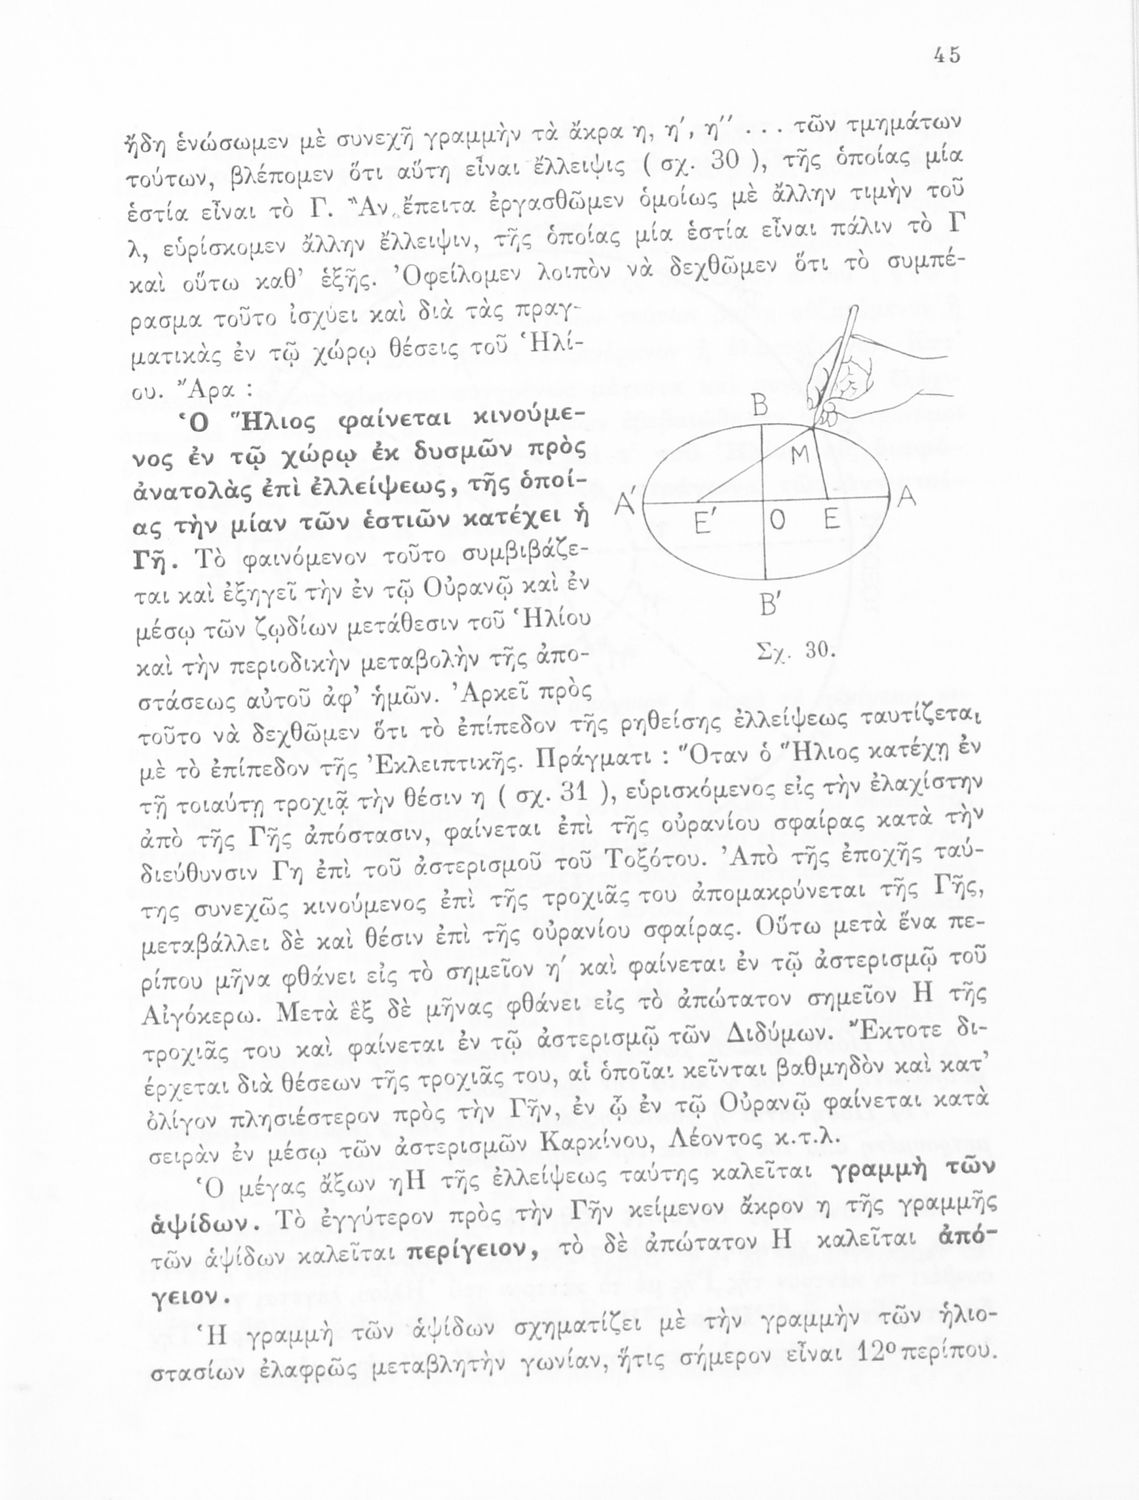 45
ἤδη ἑνώσωμεν μὲ συνεχῆ γραμμὴν τὰ ἄκρα η, η′, η″ . . . τῶν τμημάτων
τούτων, βλέπομεν ὅτι αὕτη εἶναι ἔλλειψις ( σχ. 30 ), τῆς ὁποίας μία
ἑστία εἶναι τὸ Γ. Ἂν ἔπειτα ἐργασθῶμεν ὁμοίως μὲ ἄλλην τιμὴν τοῦ
λ, εὑρίσκομεν ἄλλην ἔλλειψιν, τῆς ὁποίας μία ἑστία εἶναι πάλιν τὸ Γ
καὶ οὕτω καθ’ ἑξῆς. Ὀφείλομεν λοιπὸν νὰ δεχθῶμεν ὅτι τὸ συμπέ-
ρασμα τοῦτο ἰσχύει καὶ διὰ τὰς πραγ-
ματικὰς ἐν τῷ χώρῳ θέσεις τοῦ Ἡλί-
ου. Ἄρα :
Ὁ Ἥλιος φαίνεται κινούμε-
νος ἐν τῷ χώρῳ ἐκ δυσμῶν πρὸς
ἀνατολὰς ἐπὶ ἐλλείψεως, τῆς ὁποί-
ας τὴν μίαν τῶν ἑστιῶν κατέχει ἡ
Γῆ. Τὸ φαινόμενον τοῦτο συμβιβάζε-
ται καὶ ἐξηγεῖ τὴν ἐν τῷ Οὐρανῷ καὶ ἐν
μέσῳ τῶν ζῳδίων μετάθεσιν τοῦ Ἡλίου
καὶ τὴν περιοδικὴν μεταβολὴν τῆς ἀπο-
στάσεως αὐτοῦ ἀφ’ ἡμῶν. Ἀρκεῖ πρὸς
B
M
A′
A
E′
O
E
B′
Σχ. 30.
τοῦτο νὰ δεχθῶμεν ὅτι τὸ ἐπίπεδον τῆς ρηθείσης ἐλλείψεως ταυτίζεται
μὲ τὸ ἐπίπεδον τῆς Ἐκλειπτικῆς. Πράγματι : Ὅταν ὁ Ἥλιος κατέχῃ ἐν
τῇ τοιαύτῃ τροχιᾷ τὴν θέσιν η ( σχ. 31 ), εὑρισκόμενος εἰς τὴν ἐλαχίστην
ἀπὸ τῆς Γῆς ἀπόστασιν, φαίνεται ἐπὶ τῆς οὐρανίου σφαίρας κατὰ τὴν
διεύθυνσιν Γη ἐπὶ τοῦ ἀστερισμοῦ τοῦ Τοξότου. Ἀπὸ τῆς ἐποχῆς ταύ-
της συνεχῶς κινούμενος ἐπὶ τῆς τροχιᾶς του ἀπομακρύνεται τῆς Γῆς,
μεταβάλλει δὲ καὶ θέσιν ἐπὶ τῆς οὐρανίου σφαίρας. Οὕτω μετὰ ἕνα πε-
ρίπου μῆνα φθάνει εἰς τὸ σημεῖον η′ καὶ φαίνεται ἐν τῷ ἀστερισμῷ τοῦ
Αἰγόκερω. Μετὰ ἓξ δὲ μῆνας φθάνει εἰς τὸ ἀπώτατον σημεῖον Η τῆς
τροχιᾶς του καὶ φαίνεται ἐν τῷ ἀστερισμῷ τῶν Διδύμων. Ἔκτοτε δι-
έρχεται διὰ θέσεων τῆς τροχιᾶς του, αἱ ὁποῖαι κεῖνται βαθμηδὸν καὶ κατ’
ὀλίγον πλησιέστερον πρὸς τὴν Γῆν, ἐν ᾧ ἐν τῷ Οὐρανῷ φαίνεται κατὰ
σειρὰν ἐν μέσῳ τῶν ἀστερισμῶν Καρκίνου, Λέοντος κ.τ.λ.
Ὁ μέγας ἄξων ηΗ τῆς ἐλλείψεως ταύτης καλεῖται γραμμὴ τῶν
ἁψίδων. Τὸ ἐγγύτερον πρὸς τὴν Γῆν κείμενον ἄκρον η τῆς γραμμῆς
τῶν ἁψίδων καλεῖται περίγειον, τὸ δὲ ἀπώτατον Η καλεῖται ἀπό-
γειον.
Ἡ γραμμὴ τῶν ἁψίδων σχηματίζει μὲ τὴν γραμμὴν τῶν ἡλιο-
στασίων ἐλαφρῶς μεταβλητὴν γωνίαν, ἥτις σήμερον εἶναι 12º περίπου.